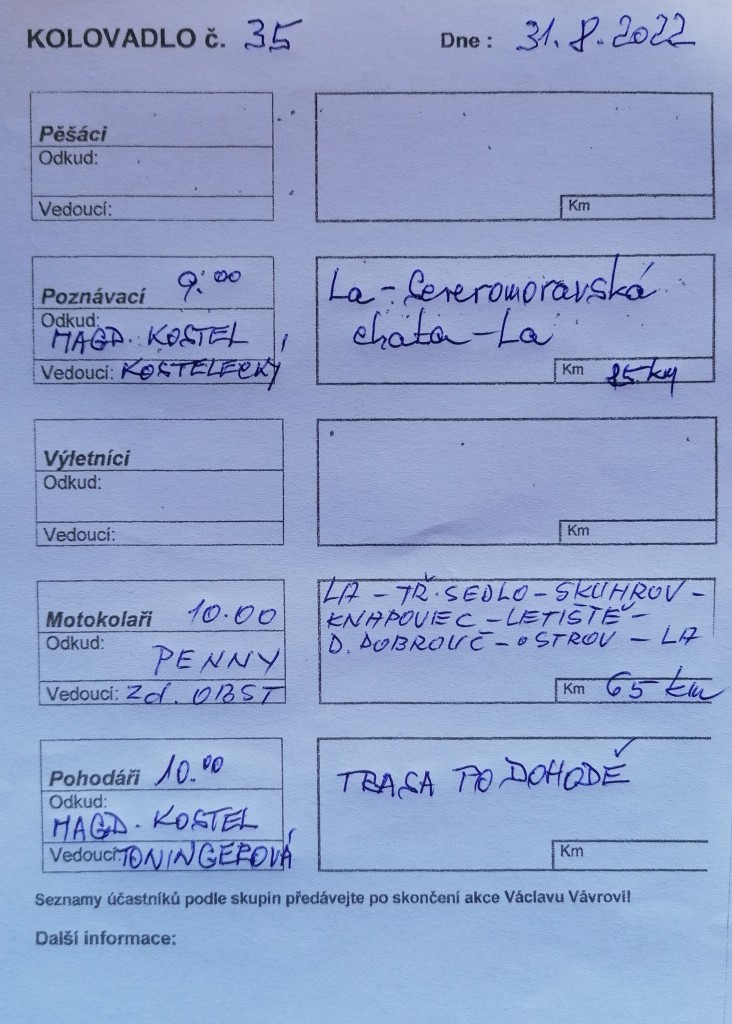 KOLOVADLO č. 35 Dne : 31.8.2022
Pěšáci
Odkud:
Vedoucí:
Km
Poznávací 9:00
Odkud: MAGD. KOSTEL
Vedoucí: KOSTELECKÝ
La - Severomoravská
chata - La
Km 85 km
Výletníci
Odkud:
Vedoucí:
Km
Motokolaři 10.00
Odkud: PENNY
Vedoucí: Zd. OBST
LA - TŘ. SEDLO - SKUHROV -
KNAPOVEC - LETIŠTĚ -
D. DOBROUČ - OSTROV - LA
Km 65 km
Pohodáři 10.00
Odkud: MAGD. KOSTEL
Vedoucí: TONINGEROVÁ
TRASA PO DOHODĚ
Km
Seznamy účastníků podle skupin předávejte po skončení akce Václavu Vávrovi!
Další informace: